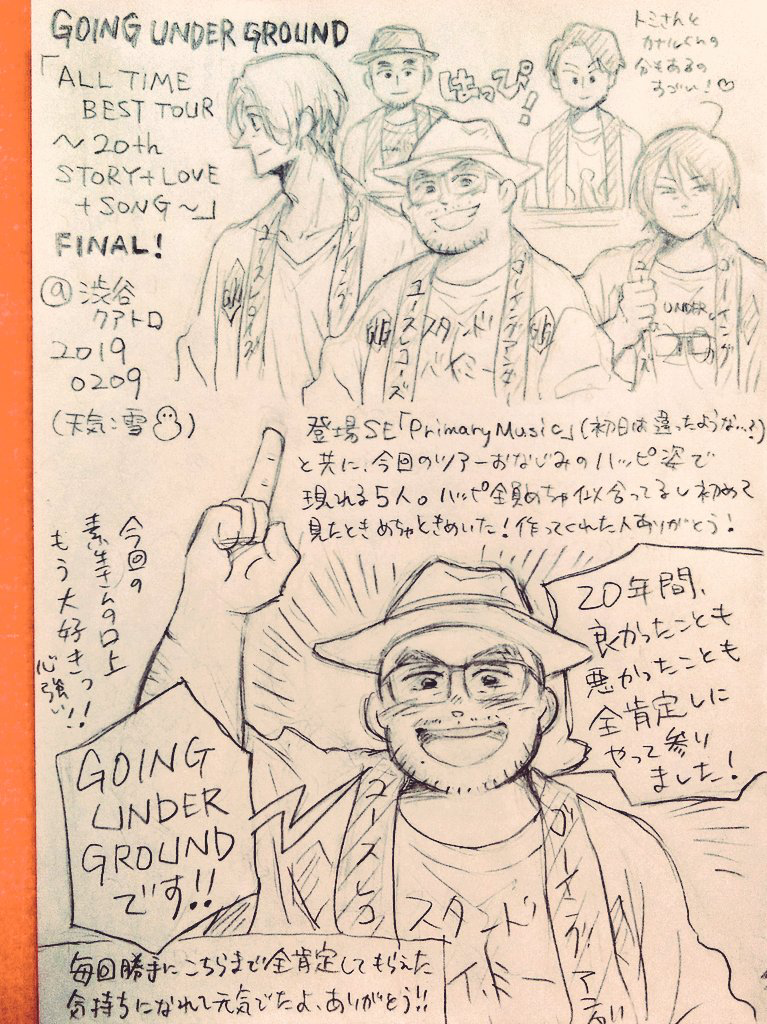 GOING UNDER GROUND
「ALL TIME
BEST TOUR
〜20th
STORY+LOVE
+SONG〜」
FINAL!
@渋谷
クアトロ
2019
0209
(天気:雪)
はっぴ!
トミさんと
カナルくんの
分もあるの
すごい!♡
ユースレコーズ
ゴーイング
GUG
ユースレコーズ
スタンド
バイミー
ゴーイングアンダー
GUG
UNDER
ゴーイング
登場SE「Primary Music」(初日は違ったような…?)
と共に、今回のツアーおなじみのハッピ姿で
現れる5人。ハッピ全員めちゃ似合ってるし初めて
見たときめちゃときめいた!作ってくれた人ありがとう!
今回の
素生さんの口上
もう大好きっ!!
心強い!
20年間、
良かったことも
悪かったことも
全肯定しに
やって参り
ました!
GOING
UNDER
GROUND
です!!
ユースレコ
スタンド
イミー
ゴーイングアンダ
毎回勝手にこちらまで全肯定してもらえた
気持ちになれて元気でたよ、ありがとう!!